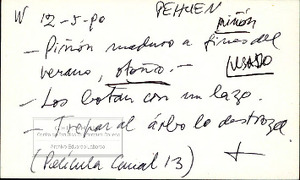 W 12-5-90 PEHUEN
piñón
- Piñón maduro a fines del
verano, otoño. - USADO
- Los botan con un lazo.
- Trepar al árbol lo destroza
(Película Canal 13) +